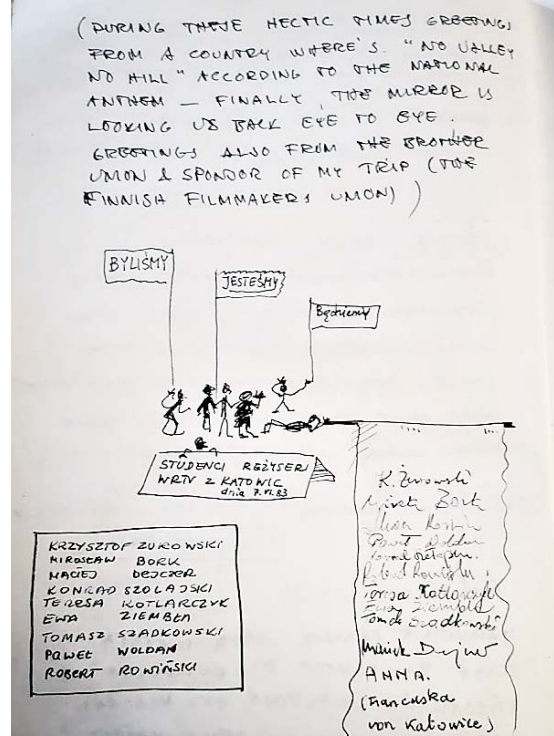 (DURING THESE HECTIC TIMES GREETINGS
FROM A COUNTRY WHERE'S "NO VALLEY
NO HILL" ACCORDING TO THE NATIONAL
ANTHEM — FINALLY, THE MIRROR IS
LOOKING US BACK EYE TO EYE.
GREETINGS ALSO FROM THE BROTHER
UNION & SPONDOR OF MY TRIP (THE
FINNISH FILMMAKERS UNION))
BYLIŚMY
JESTEŚMY
Będziemy
STUDENCI REŻYSERI
WRTV Z KATOWIC
dnia 7.VI.83
KRZYSZTOF ZUROWSKI
MIROSŁAW BORK
MACIEJ DEJCZER
KONRAD SZOŁAJSKI
TERESA KOTLARCZYK
EWA ZIEMBŁA
TOMASZ SZADKOWSKI
PAWEŁ WOLDAN
ROBERT ROWIŃSKI
K. Żurowski
Bork
Paweł Woldan
Teresa Kotlarczyk
Ewa Ziembła
Tomasz Szadkowski
ANNA.
(Francuska
von Katowice)